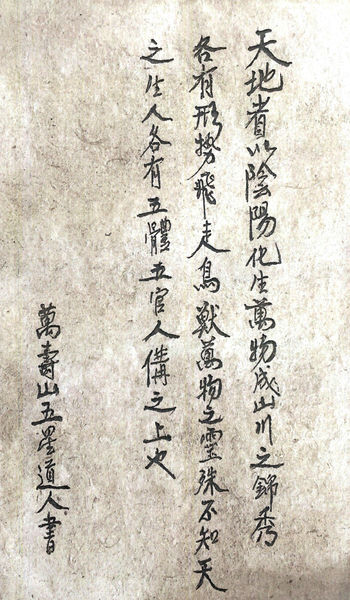 天地者以陰陽化生萬物成山川之錦秀
各有形勢飛走鳥獸萬物之靈殊不知天
之生人各有五體五官人備之上也
萬壽山五星道人書